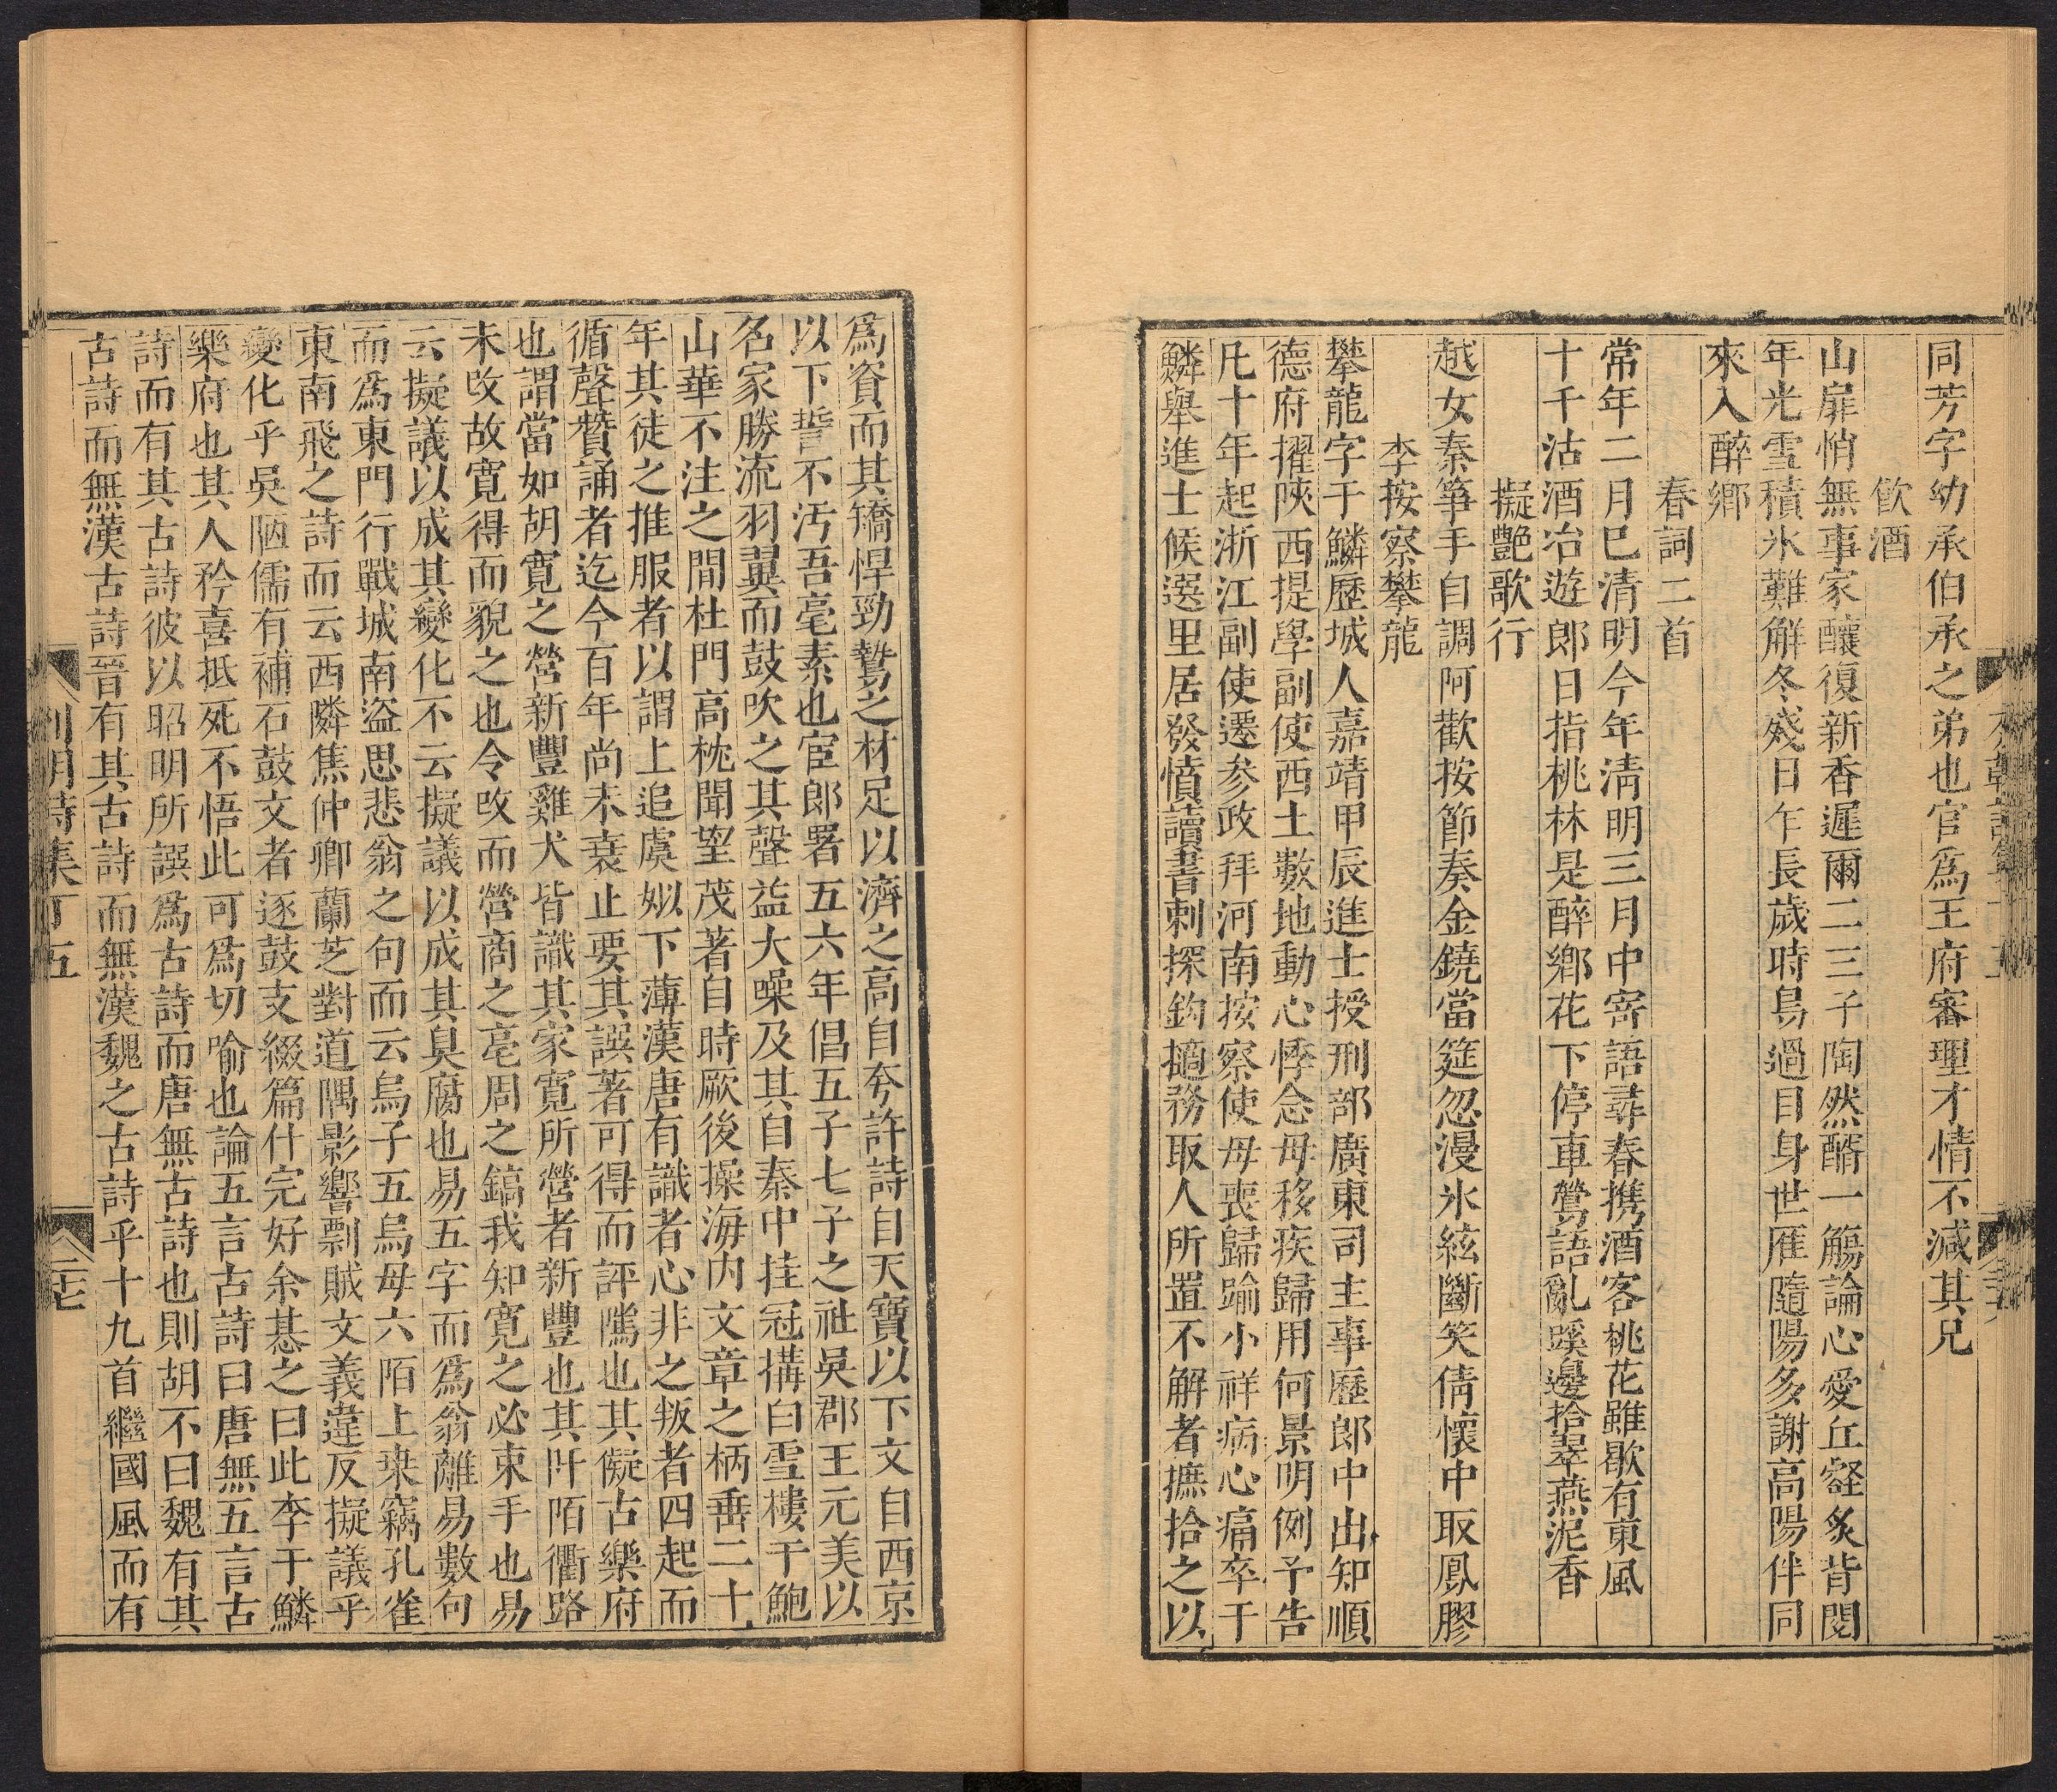 同芳字幼承伯承之弟也官爲王府審理才情不減其兄
飮酒
山扉悄無事家釀復新香遲爾二三子陶然醑一觴論心愛丘壑炙背閱
年光雪積氷難解冬殘日乍長歲時易過目身世雁隨陽多謝高陽伴同
來入醉鄉
春詞二首
常年二月巳清明今年淸明三月中寄語尋春携酒客桃花雖歇有東風
十千沽酒冶遊郎日指桃林是醉鄉花下停車鶯語亂蹊邊拾翠燕泥香
擬艶歌行
越女秦箏手自調阿歡按節奏金鐃當筵忽漫氷絃斷笑倩懷中取鳳膠
李按察攀龍
攀龍字于鱗歷城人嘉靖甲辰進士授刑部廣東司主事歷郎中出知順
德府擢陝西提學副使西土數地動心悸念母移疾歸用何景明例予告
凡十年起浙江副使遷参政拜河南按察使母喪歸踰小祥病心痛卒于
鱗舉進士候選里居發憤讀書刺探鈎擿務取人所置不解者摭拾之以
爲資而其矯悍勁鷙之材足以濟之高自夸許詩自天寶以下文自西京
以下誓不汚吾毫素也宦郎署五六年倡五子七子之社吳郡王元美以
名家勝流羽翼而鼓吹之其聲益大噪及其自秦中挂冠搆白雪樓于鮑
山華不注之間杜門高枕聞望茂著自時厥後操海内文章之柄垂二十
年其徒之推服者以謂上追虞姒下薄漢唐有識者心非之叛者四起而
循聲贊誦者迄今百年尚未衰止要其譔著可得而評隲也其儗古樂府
也謂當如胡寬之營新豐雞犬皆識其家寬所營者新豐也其阡陌衢路
未改故寬得而貌之也令改而營商之亳周之鎬我知寬之必束手也易
云擬議以成其變化不云擬議以成其臭腐也易五字而爲翁離易數句
而爲東門行戰城南盜思悲翁之句而云烏子五烏母六陌上桒竊孔雀
東南飛之詩而云西隣焦仲卿蘭芝對道隅影響剽賊文義違反擬議乎
變化乎吳陋儒有補石鼓文者逐鼓支綴篇什完好余惎之曰此李于鱗
樂府也其人矜喜抵死不悟此可爲切喻也論五言古詩曰唐無五言古
詩而有其古詩彼以昭明所譔爲古詩而唐無古詩也則胡不曰魏有其
古詩而無漢古詩晉有其古詩而無漢魏之古詩乎十九首繼國風而有